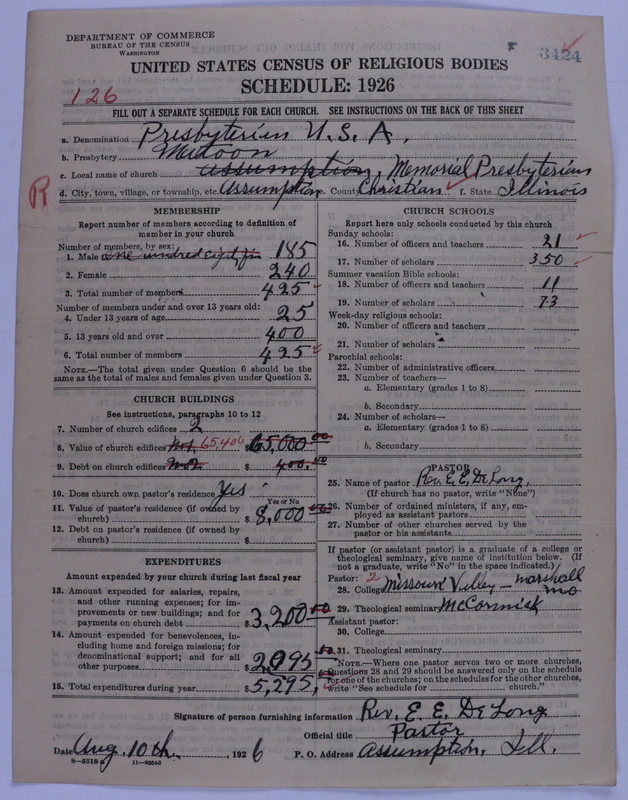 DEPARTMENT OF COMMERCE
BUREAU OF THE CENSUS
WASHINGTON
3424
UNITED STATES CENSUS OF RELIGIOUS BODIES
SCHEDULE: 1926
126
FILL OUT A SEPARATE SCHEDULE FOR EACH CHURCH. SEE INSTRUCTIONS ON THE BACK OF THIS SHEET
a. Denomination Presbyterian U.S.A.
b. Presbytery Mattoon
c. Local name of church Assumption, Memorial Presbyterian
R
d. City, town, village, or township, etc. Assumption e. County Christian f. State Illinois
MEMBERSHIP
Report number of members according to definition of
member in your church
Number of members, by sex:
1. Male one hundred eighty fiv 185
2. Female 240
3. Total number of members 425
Number of members under and over 13 years old:
4. Under 13 years of age 25
5. 13 years old and over 400
6. Total number of members 425
NOTE.—The total given under Question 6 should be the
same as the total of males and females given under Question 3.
CHURCH BUILDINGS
See instructions, paragraphs 10 to 12
7. Number of church edifices 2
8. Value of church edifices No1. 65,400 $ 65,000.00
9. Debt on church edifices No2 $ 400.00
10. Does church own pastor's residence Yes
Yes or No
11. Value of pastor's residence (if owned by
church) $ 8,000
12. Debt on pastor's residence (if owned by
church) $
EXPENDITURES
Amount expended by your church during last fiscal year
13. Amount expended for salaries, repairs,
and other running expenses; for im-
provements or new buildings; and for
payments on church debt $ 3,200.00
14. Amount expended for benevolences, in-
cluding home and foreign missions; for
denominational support; and for all
other purposes $ 2095.00
15. Total expenditures during year $ 5,295.
CHURCH SCHOOLS
Report here only schools conducted by this church
Sunday schools:
16. Number of officers and teachers 21
17. Number of scholars 350
Summer vacation Bible schools:
18. Number of officers and teachers 11
19. Number of scholars 73
Week-day religious schools:
20. Number of officers and teachers
21. Number of scholars
Parochial schools:
22. Number of administrative officers
23. Number of teachers—
a. Elementary (grades 1 to 8)
b. Secondary
24. Number of scholars—
a. Elementary (grades 1 to 8)
b. Secondary
PASTOR
25. Name of pastor Rev. E. E. DeLong,
(If church has no pastor, write "None")
26. Number of ordained ministers, if any, em-
ployed as assistant pastors
27. Number of other churches served by the
pastor or his assistants
If pastor (or assistant pastor) is a graduate of a college or
theological seminary, give name of institution below. (If
not a graduate, write "No" in the space indicated.)
Pastor: 2
28. College Missouri Valley — Marshall Mo
29. Theological seminary McCormick
Assistant pastor:
30. College
31. Theological seminary
NOTE.—Where one pastor serves two or more churches,
Questions 28 and 29 should be answered only on the schedule
for one of the churches; on the schedules for the other churches,
write "See schedule for church."
Signature of person furnishing information Rev. E. E. DeLong
Official title Pastor
Date Aug. 10th, 1926 P. O. Address Assumption, Ill.
8—5518a 11—9054a